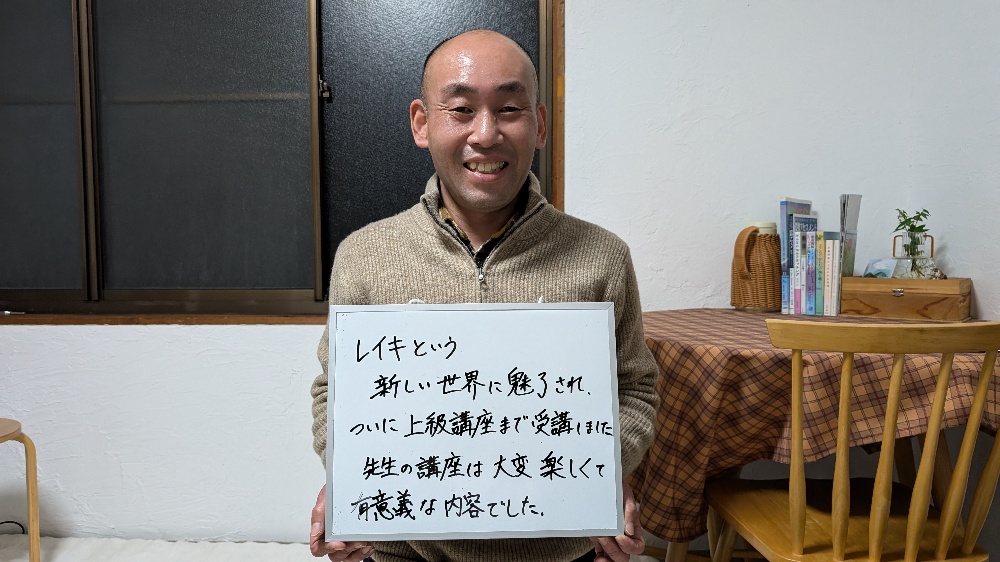 レイキという
新しい世界に魅了され、
ついに上級講座まで受講しました
先生の講座は大変楽しくて
有意義な内容でした。